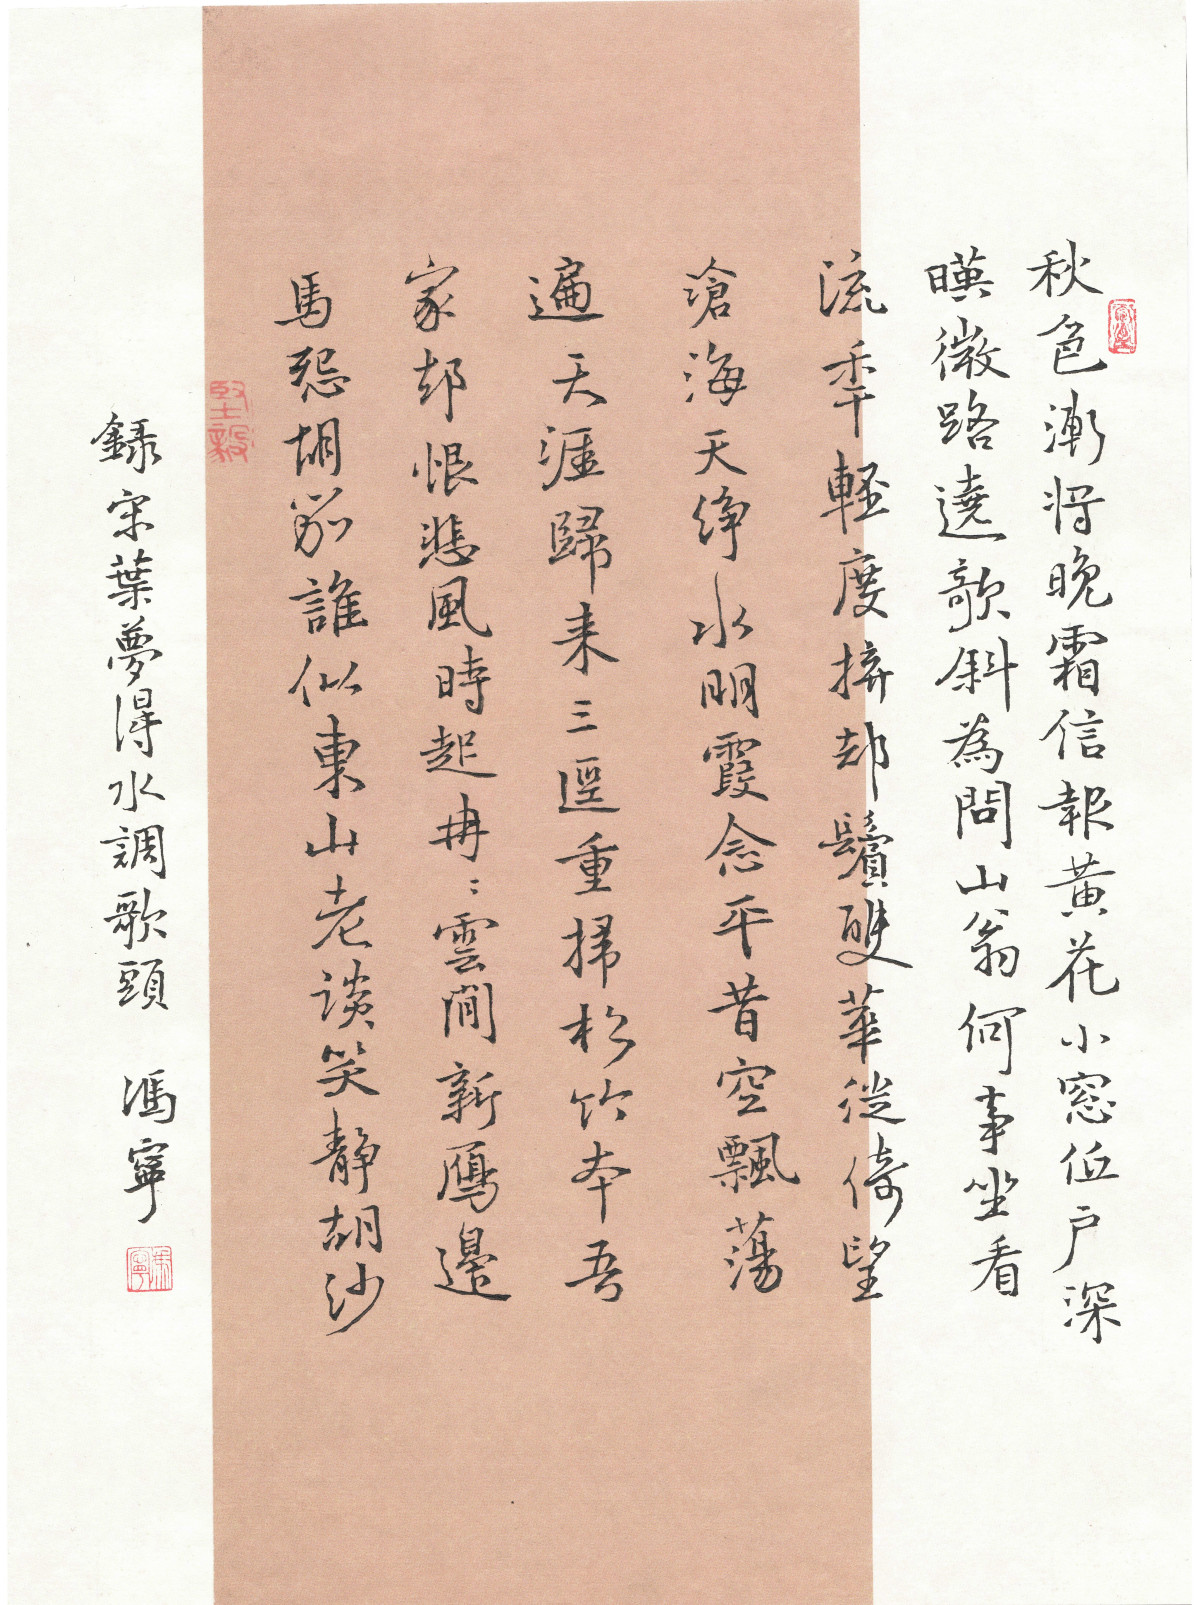 秋色漸將晚霜信報黃花小窓低户深
暎微路遶歌斜為問山翁何事坐看
流年輕度擠却鬢雙華徙倚望
滄海天净水明霞念平昔空飄蕩
遍天涯歸来三逕重掃松竹本吾
家却恨悲風時起冉﹕雲間新鴈邊
馬怨胡笳誰似東山老談笑静胡沙
録宋葉夢得水調歌頭 馮寧
堅毅
馮寧